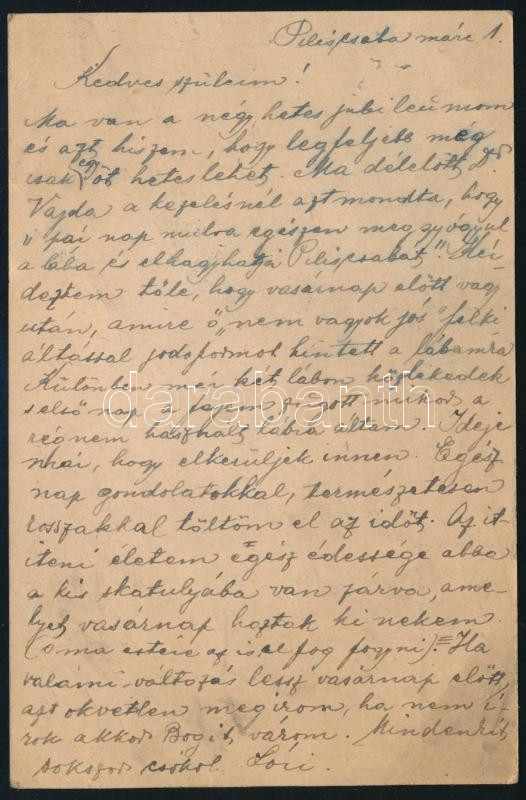 Piliscsaba márc 1.
Kedves szüleim!
Ma van a négyhetes jubileumom
és azt hiszem, hogy legfeljebb még
csak egy öt hetes lehet. Ma délelőtt Dr
Vajda a kezelésnél azt mondta, hogy
"pár nap mulva egészen meggyógyul
a lába és elhagyhatja Piliscsabát". Kér-
deztem tőle, hogy vasárnap előtt vagy
után, amire ő "nem vagyok jós" felki-
áltással jodoformot hintett a lábamra
Különben már két lábon közlekedek
s első nap a fejem
régnem használt lábra álltam. Ideje
már, hogy elkerüljek innen. Egész
nap gondolatokkal, természetesen
rosszakkal töltöm el az időt. Az it-
teni életem egész édessége abba
a kis skatulyába van zárva, ame-
lyet vasárnap hoztak ki nekem.
(ó ma estére az is el fog fogyni). Ha
valami változás lessz vasárnap előtt,
azt okvetlen megirom, ha nem í-
rok akkor Bogit várom. Mindenkit
sokszor csókol Lóri.
darabanth